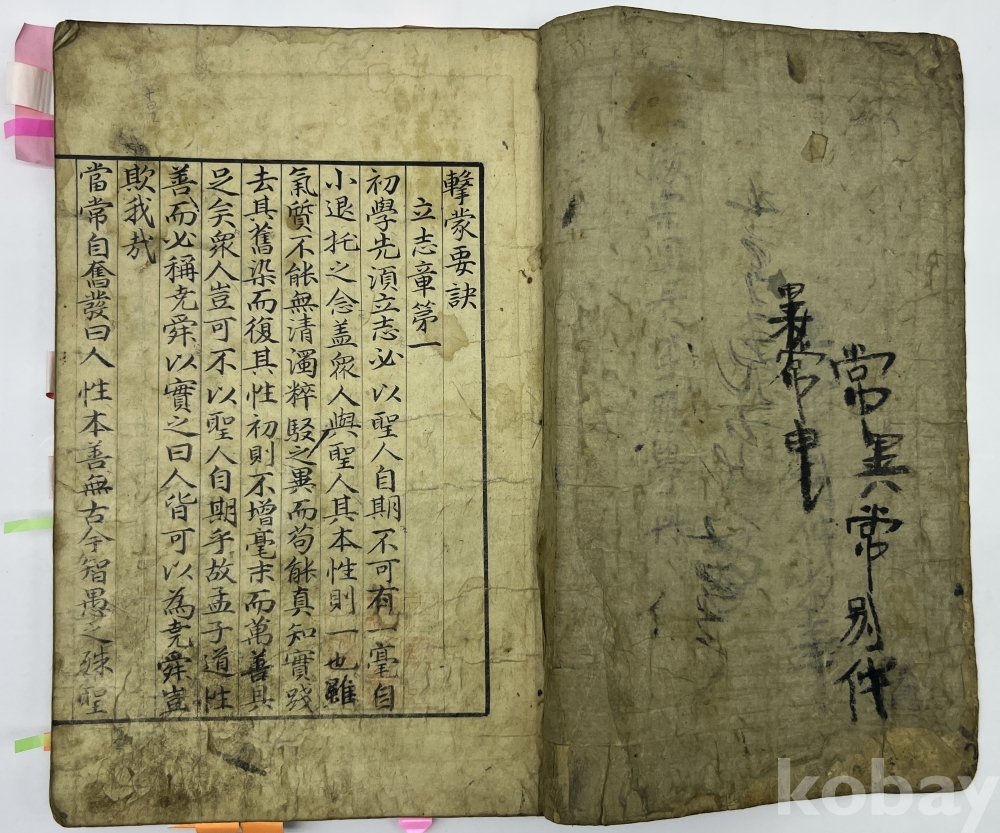 常異常別伴
異常申
擊蒙要訣
立志章第一
初學先湏立志必以聖人自期不可有一毫自
小退托之念盖衆人與聖人其本性則一也雖
氣質不能無清濁粹駁之異而苟能真知實踐
去其舊染而復其性初則不增毫末而萬善具
足矣衆人豈可不以聖人自期乎故孟子道性
善而必稱尭舜以實之曰人皆可以為尭舜豈
欺我㢤
當常自奮發曰人性本善無古今智愚之殊聖
kobay